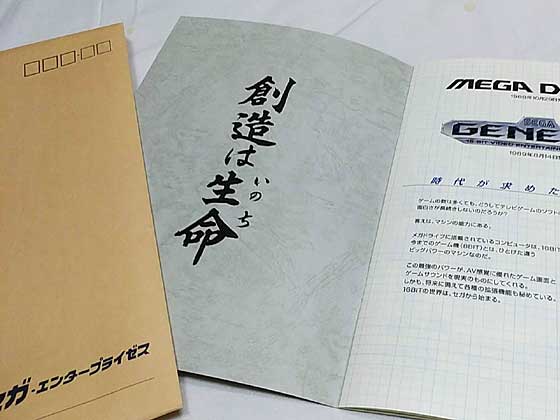 セガ・エンタープライゼス
創造は
生命
いのち
MEGA D
1988年10月29日
SEGA
GENE
16-BIT VIDEO ENTERTAIN
1989年8月14日
時代が求めた
ゲームの数は多くても、どうしてテレビゲームのソフト
面白さが長続きしないのだろうか?
答えは、マシンの能力にある。
メガドライブに搭載されているコンピュータは、16BIT
今までのゲーム機(8BIT)とは、ひとけた違う
ビッグパワーのマシンなのだ。
この最強のパワーが、AV感覚に優れたゲーム画面と
ゲームサウンドを現実のものにしてくれる。
しかも、将来に備えて各種の拡張機能も秘めている。
16BITの世界は、セガから始まる。